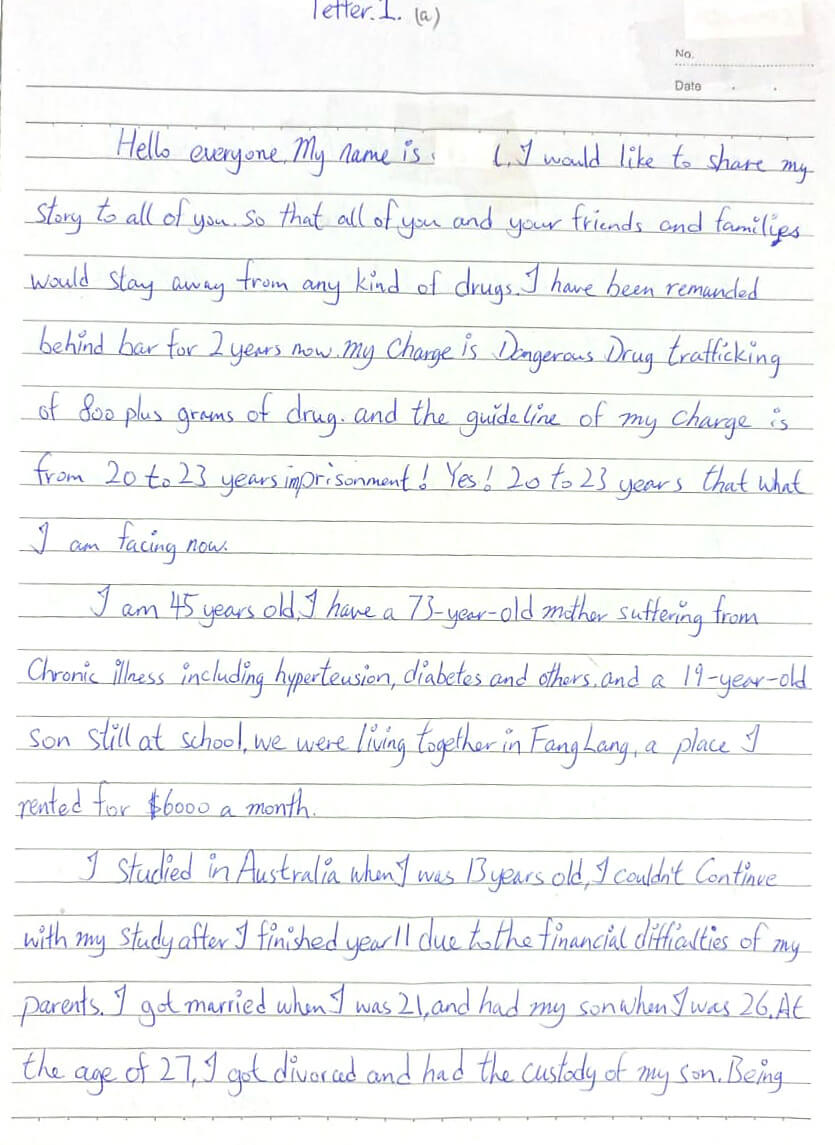 letter.1. (a)
No.
Date
Hello everyone, My name is. I would like to share my
story to all of you. so that all of you and your friends and families
would stay away from any kind of drugs. I have been remanded
behind bar for 2 years now. my charge is Dangerous Drug trafficking
of 800 plus grams of drug. and the guideline of my charge is
from 20 to 23 years imprisonment! Yes! 20 to 23 years that what
I am facing now.
I am 45 years old, I have a 73-year-old mother suffering from
Chronic illness including hypertension, diabetes and others. and a 19-year-old
son still at school, we were living together in Fang Lang, a place I
rented for $6000 a month.
I studied in Australia when I was 13 years old, I couldn't Continue
with my study after I finished year 11 due to the financial difficulties of my
parents. I got married when I was 21, and had my son when I was 26. At
the age of 27, I got divorced and had the custody of my son. Being